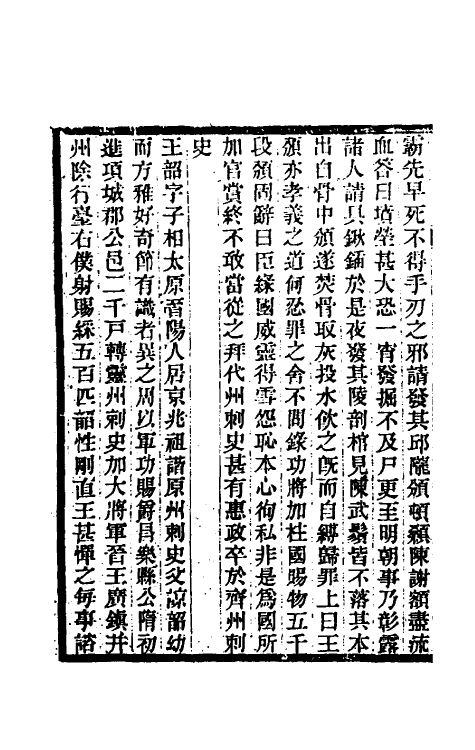 霸先早死不得手刃之邪請發其邱隴頒頓顙陳謝額盡流
血答曰墳塋甚大恐一宵發掘不及尸更至明朝事乃彰露
諸人請具鍬鍤於是夜發其陵剖棺見陳武鬚皆不落其本
出自骨中頒遂焚骨取灰投水飲之旣而自縛歸罪上曰王
頒亦孝義之道何忍罪之舍不問錄功將加柱國賜物五千
段頒固辭曰臣緣國威靈得雪怨恥本心徇私非是爲國所
加官賞終不敢當從之拜代州刺史甚有惠政卒於齊州刺
史
王韶字子相太原晉陽人居京兆祖諧原州刺史父諒韶幼
而方雅好奇節有識者異之周以軍功賜爵昌樂縣公隋初
進項城郡公邑二千戸轉靈州刺史加大將軍晉王廣鎭并
州除行臺右僕射賜綵五百匹韶性剛直王甚憚之每事諮